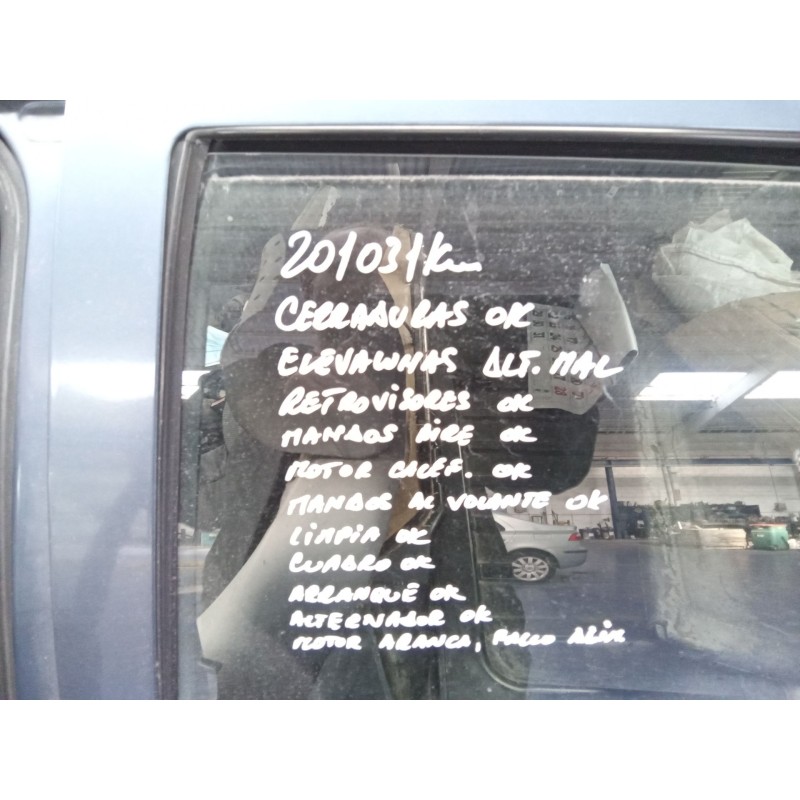 201031 Km
CERRADURAS OK
ELEVALUNAS DLT. MAL
RETROVISORES OK
MANDOS AIRE OK
MOTOR CALEF. OK
MANDOS AL VOLANTE OK
LIMPIA OK
CUADRO OK
ARRANQUE OK
ALTERNADOR OK
MOTOR ARANCA, FALLO